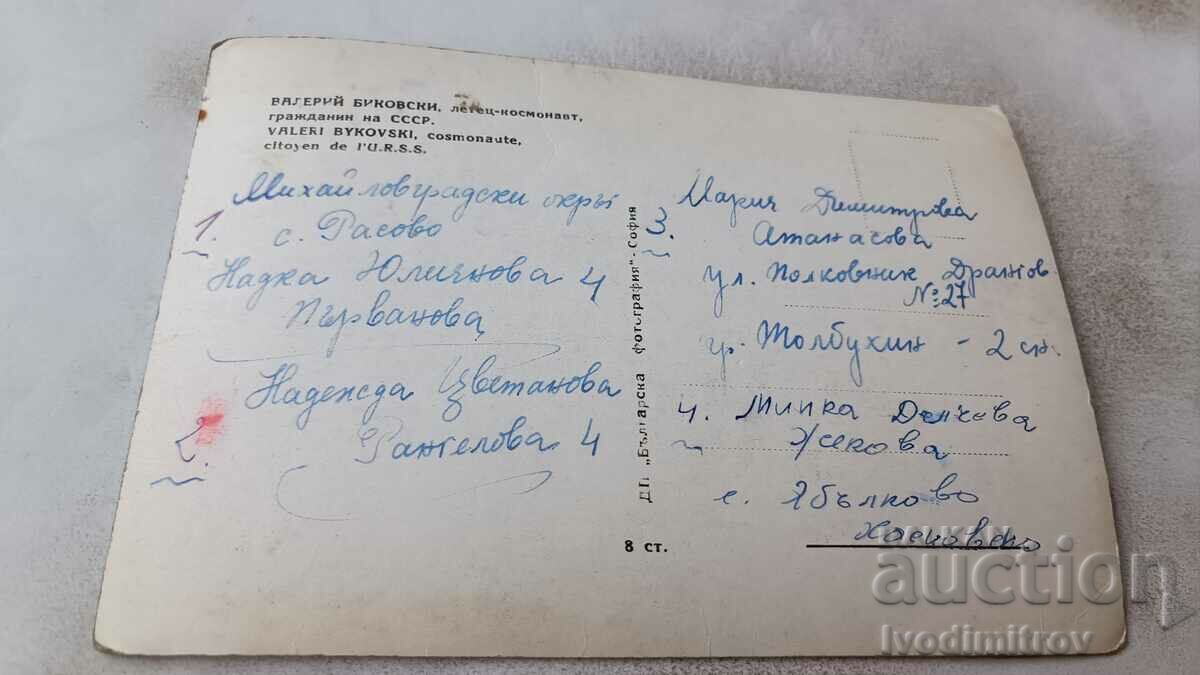 ВАЛЕРИЙ БИКОВСКИ, летец-космонавт,
гражданин на СССР.
VALERI BYKOVSKI, cosmonaute,
citoyen de l'U.R.S.S.
Михайловградски окръг
1. с. Расово
Надка Юлиянова 4
Първанова
Надежда Цветанова
2. Рангелова 4
ДП „Българска фотография"-София
8 ст.
Мария Димитрова
3. Атанасова
ул. Полковник Дрангов
№ 27
гр. Толбухин - 2
4. Минка Делчева
Жекова
с. Ябълково
Хасковско
BALKAN
auction
Ivodimitrov